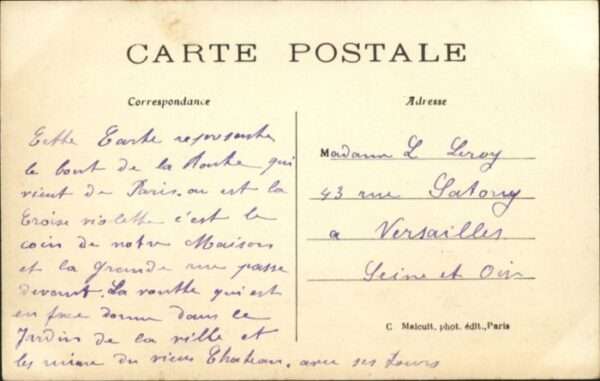 CARTE POSTALE
Correspondance
Cette Carte represente
le bout de la Route qui
vient de Paris. ou est la
Croise violette c'est le
coin de notre Maison
et la grande rue passe
devant. La voutte qui est
en face donne dans le
Jardin de la ville et
les ruine du vieux Chateau. avec ses tours
Adresse
Madame L Leroy
43 rue Satory
a Versailles
Seine et Oise
C. Malcuit, phot. édit., Paris